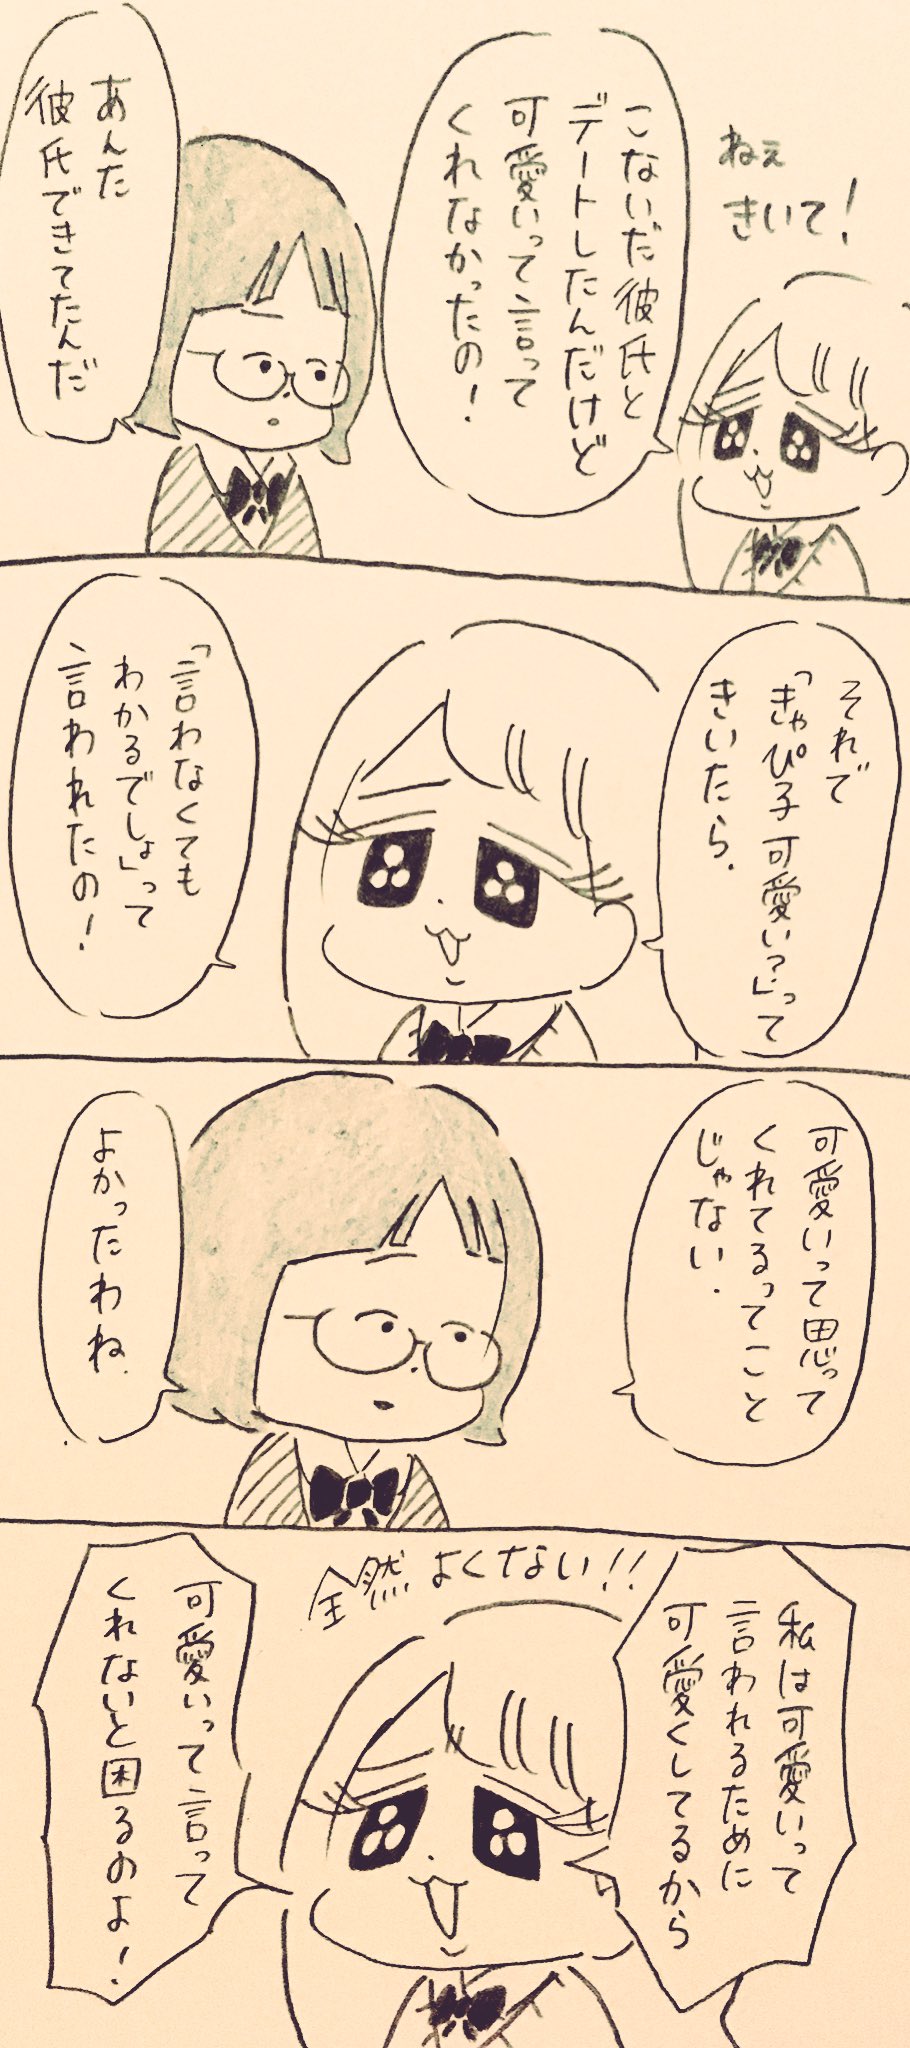 ねぇ
きいて！
こないだ彼氏と
デートしたんだけど
可愛いって言って
くれなかったの！
あんた
彼氏できてたんだ
それで
「きゃぴ子可愛い？」って
きいたら、
「言わなくても
わかるでしょ」って
言われたの！
可愛いって思って
くれてるってこと
じゃない．
よかったわね、
全然よくない！！
私は可愛いって
言われるために
可愛くしてるから
可愛いって言って
くれないと困るのよ！